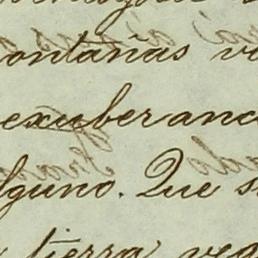 ontañas va
exuberanc
lguno. Que s
tierra veg